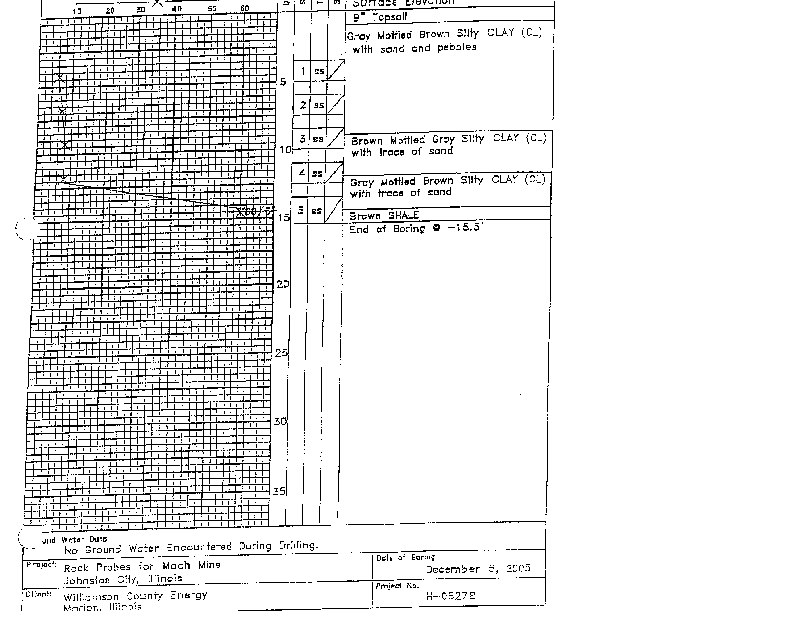 10 20 30 40 50 60
Surface Elevation
9" Topsoil
Gray Mottled Brown Silty CLAY (CL)
with sand and pebbles
1 SS
5
2 SS
3 SS
Brown Mottled Gray Silty CLAY (CL)
with trace of sand
10
4 SS
Gray Mottled Brown Silty CLAY (CL)
with trace of sand
15
5 SS
Brown SHALE
End of Boring @ -15.5'
20
25
30
35
und Water Data
No Ground Water Encountered During Drilling.
Project: Rock Probes for Mach Mine
Johnston City, Illinois
Date of Boring
December 6, 2005
Client: Williamson County Energy
Marion, Illinois
Project No.